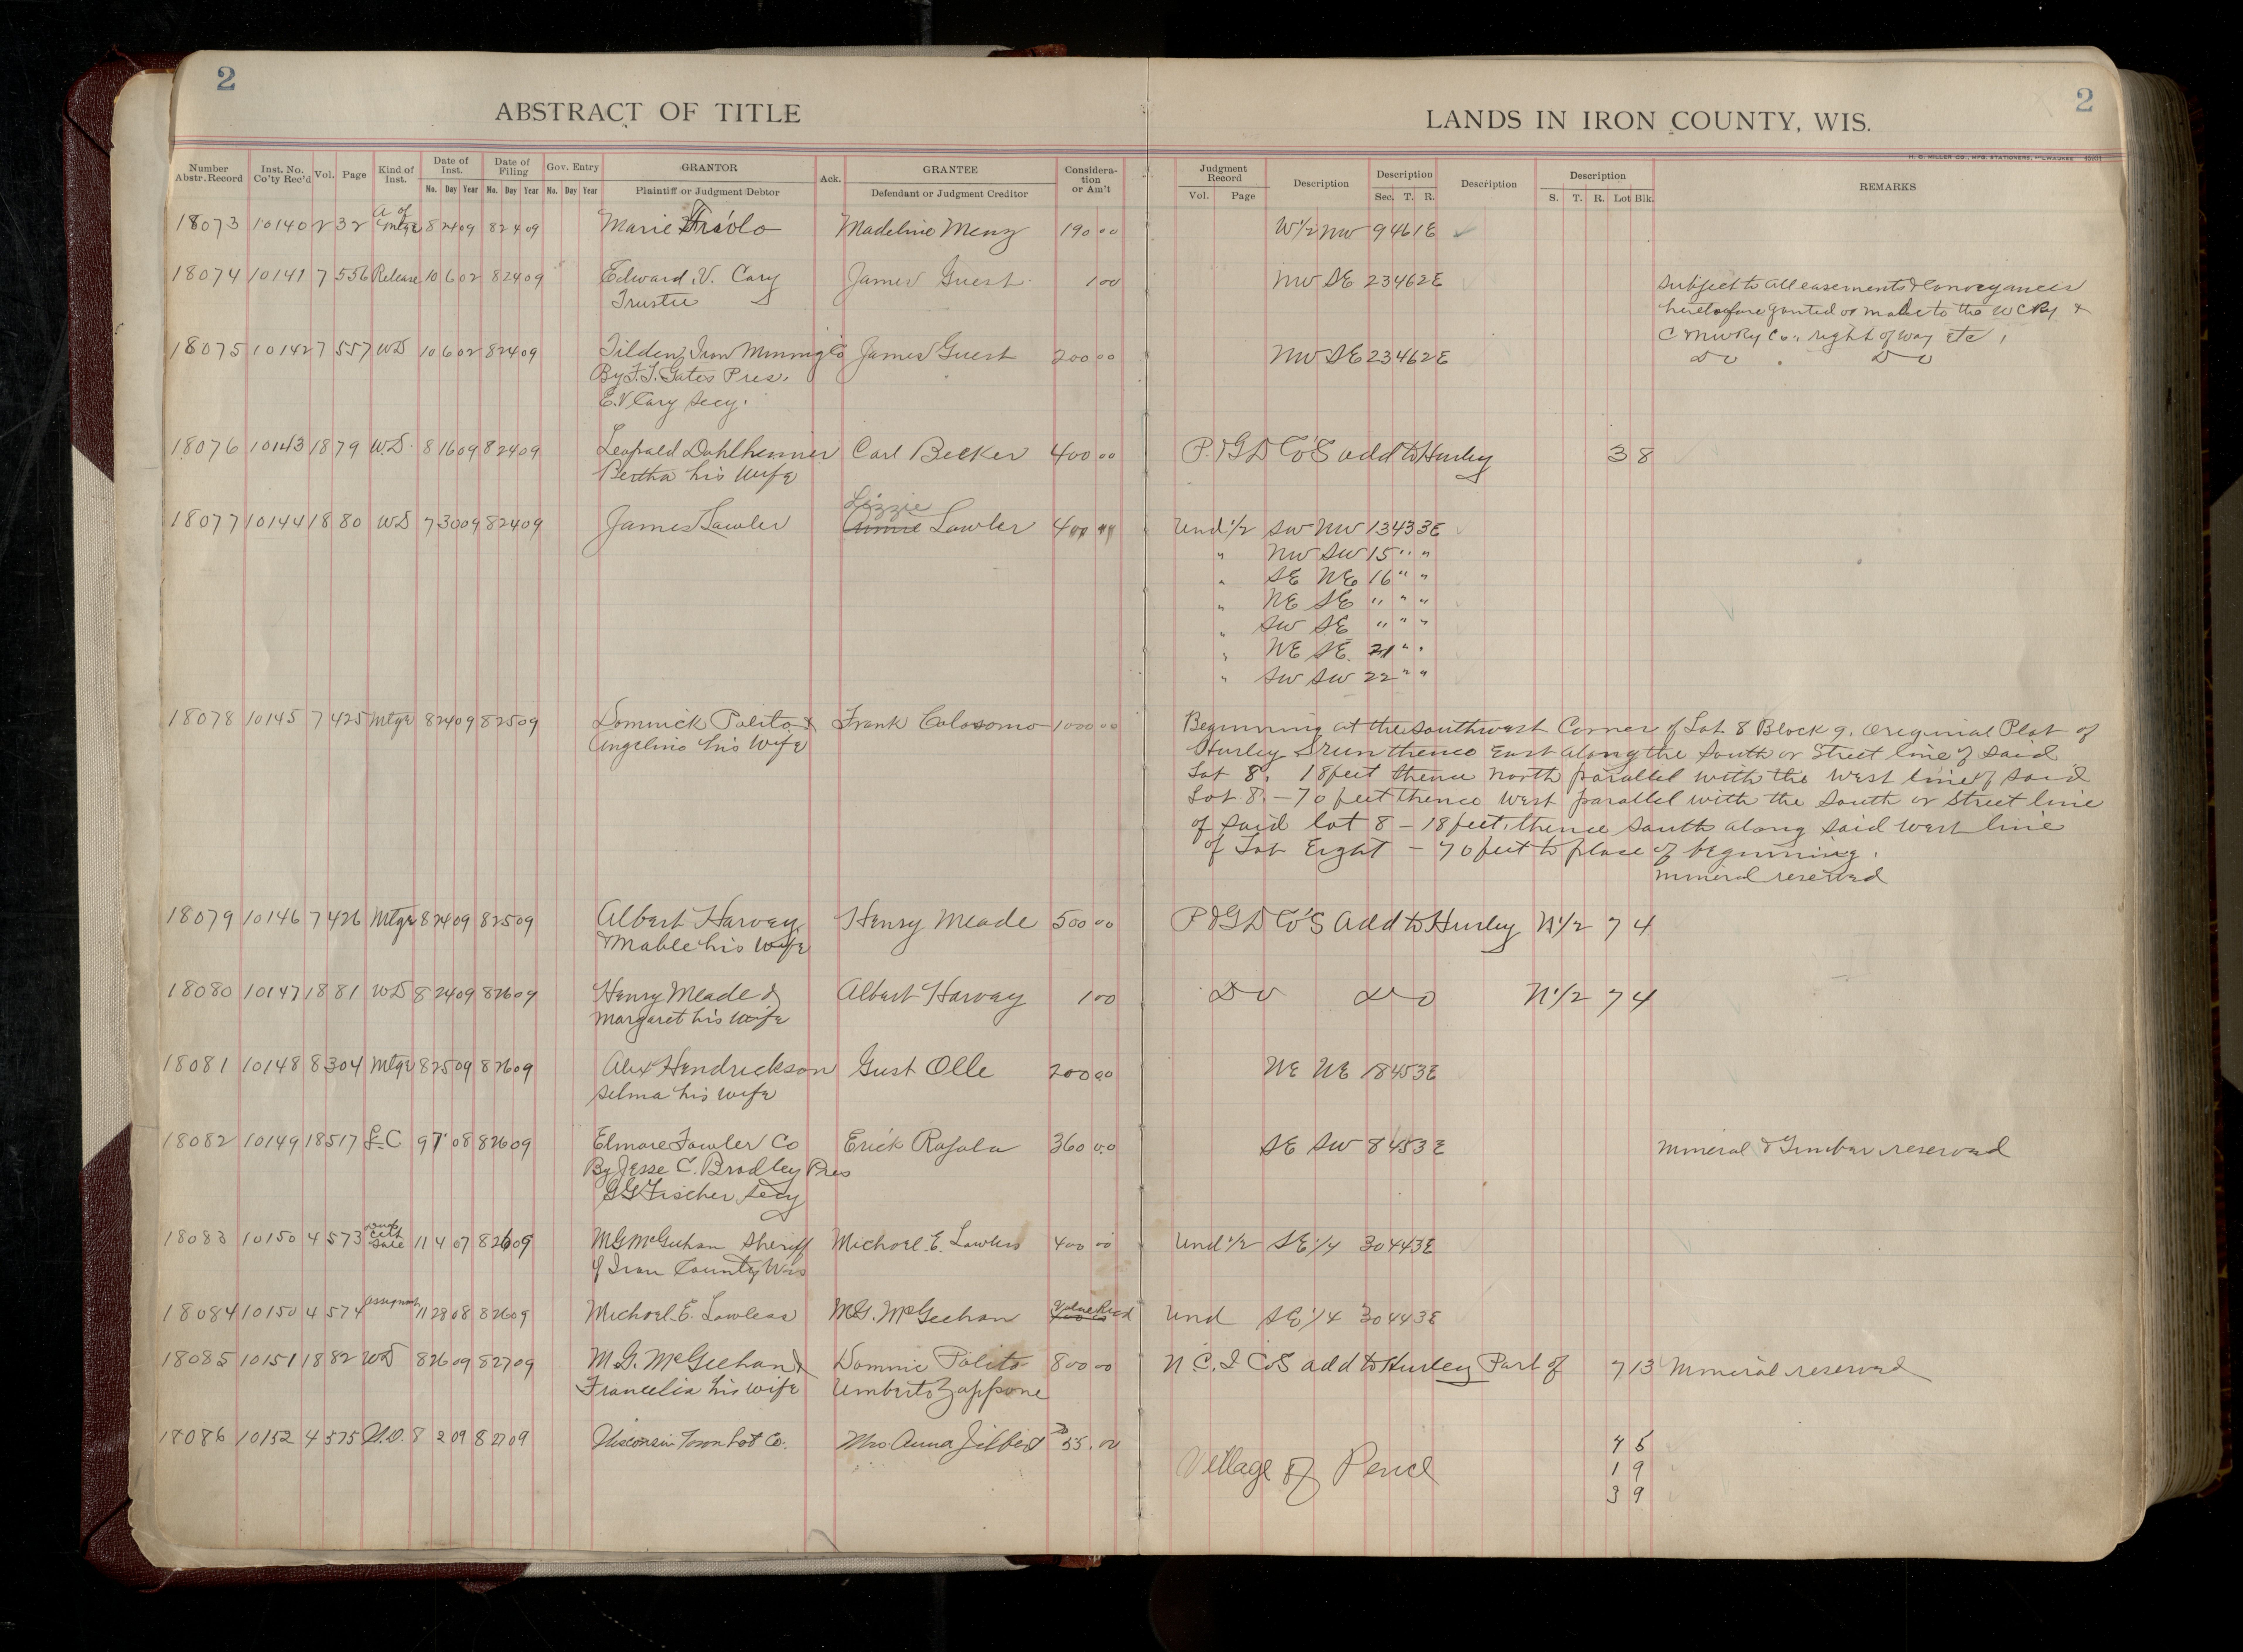 2
2
ABSTRACT OF TITLE
LANDS IN IRON COUNTY, WIS.
H. C. MILLER CO., MFG. STATIONERS, MILWAUKEE
Number Abstr. Record | Inst. No. Co'ty Rec'd | Vol. | Page | Kind of Inst. | Date of Inst. Mo. Day Year | Date of Filing Mo. Day Year | Gov. Entry Mo. Day Year | GRANTOR Plaintiff or Judgment Debtor | Ack. | GRANTEE Defendant or Judgment Creditor | Considera-tion or Am't | Judgment Record Vol. Page | Description | Description Sec. T. R. | Description | Description S. T. R. Lot Blk. | REMARKS
18073 10140 2 32 A of Mtge 8 24 09 8 24 09 Marie Madeline Menz 190 00 W1/2 NW 9 46 1E
18074 10141 7 556 Release 10 6 02 8 24 09 Edward V. Cary James Guest 1 00 NW SE 23 46 2E Subject to all easements & Conveyances
Trustee heretofore granted or made to the W C Ry &
C & NW Ry Co., right of way etc.
18075 10142 7 557 WD 10 6 02 8 24 09 Tilden Iron Mining Co James Guest 200 00 NW SE 23 46 2E Do Do
By F. T. Gates Pres.
E. V Cary Secy.
18076 10143 18 79 WD 8 16 09 8 24 09 Leopold Dahlheimer Carl Becker 400 00 P. & G D Co's add to Hurley 3 8
Bertha his wife
Lizzie
18077 10144 18 80 WD 7 30 09 8 24 09 James Lawler Annie Lawler 400 Und 1/2 SW NW 13 43 3E
" NW SW 15 " "
" SE NE 16 " "
" NE SE " " "
" SW SE " " "
" NE SE 21 " "
" SW SW 22 " "
18078 10145 7 425 Mtge 8 24 09 8 25 09 Dominick Polito & Frank Colosomo 1000 00 Beginning at the Southwest Corner of Lot 8 Block 9. Original Plat of
Angelino his wife Hurley & run thence East along the South or Street line of said
Lot 8. 18 feet thence North parallel with the West line of said
Lot 8. - 70 feet thence West parallel with the South or Street line
of said lot 8 - 18 feet, thence South along said west line
of Lot Eight - 70 feet to place of beginning.
mineral reserved
18079 10146 7 426 Mtge 8 24 09 8 25 09 Albert Harvey Henry Meade 500 00 P & G D Co's Add to Hurley N 1/2 7 4
& Mable his wife
18080 10147 18 81 WD 8 24 09 8 26 09 Henry Meade & Albert Harvey 1 00 Do Do N 1/2 7 4
Margaret his wife
18081 10148 8 304 Mtge 8 25 09 8 26 09 Alex Hendrickson Gust Olle 200 00 NE NE 18 45 3E
Selma his wife
18082 10149 18 517 L-C 9 1 08 8 26 09 Elmore Fowler Co Erick Rajala 360 00 SE SW 8 45 3E mineral & Timber reserved
By Jesse C. Bradley Pres
G G Fischer Secy
18083 10150 4 573 Sale 11 4 07 8 26 09 M G McGeehan Sheriff Michael E. Lawless 400 00 Und 1/2 SE 1/4 30 44 3E
of Iron County Wis
18084 10150 4 574 assignmt 11 28 08 8 26 09 Michael E. Lawless M.G. McGeehan Value Recd Und SE 1/4 30 44 3E
18085 10151 18 82 WD 8 26 09 8 27 09 M. G. McGeehan & Dominic Polito 800 00 N C. I Co's add to Hurley Part of 7 13 Mineral reserved
Francelia his wife Umberto Zappone
18086 10152 4 575 W.D. 8 2 09 8 27 09 Wisconsin Town Lot Co. Mrs Anna 55.00 Village of Pence 4 5
1 9
3 9